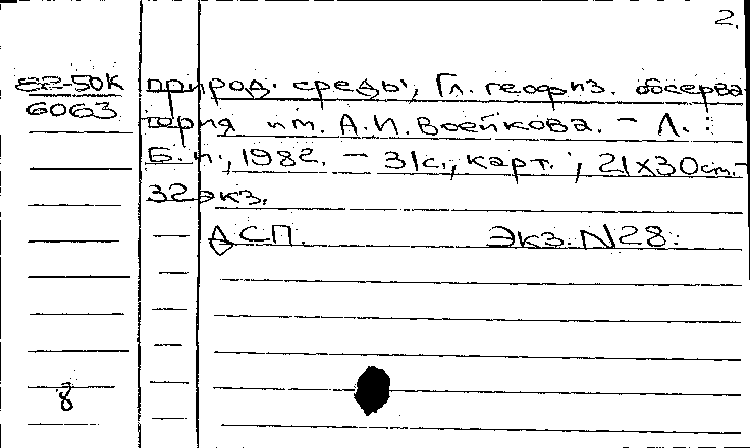 2.
82-50К природ. среды, Гл. геофиз. обсерва
6063 тория им. А.И. Воейкова. – Л. :
Б.и., 1982. – 31с., карт. ; 21х30см.–
32экз.
ДСП. Экз. N28.
8